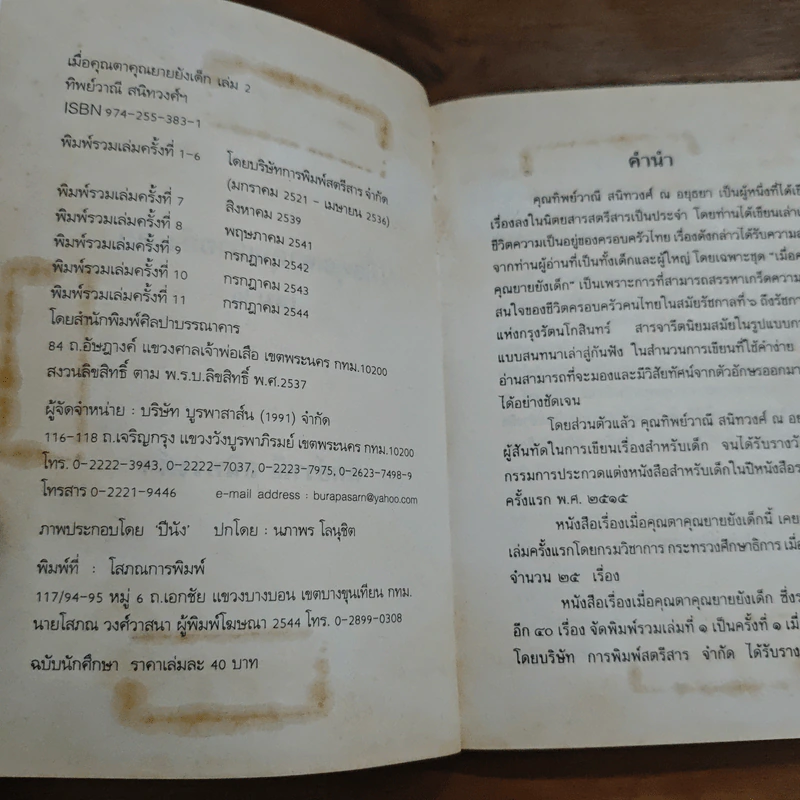 เมื่อคุณตาคุณยายยังเด็ก เล่ม 2
ทิพย์วาณี สนิทวงศ์ฯ
ISBN 974-255-383-1
พิมพ์รวมเล่มครั้งที่ 1-6 โดยบริษัทการพิมพ์สตรีสาร จำกัด
(มกราคม 2521 - เมษายน 2536)
พิมพ์รวมเล่มครั้งที่ 7 สิงหาคม 2539
พิมพ์รวมเล่มครั้งที่ 8 พฤษภาคม 2541
พิมพ์รวมเล่มครั้งที่ 9 กรกฎาคม 2542
พิมพ์รวมเล่มครั้งที่ 10 กรกฎาคม 2543
พิมพ์รวมเล่มครั้งที่ 11 กรกฎาคม 2544
โดยสำนักพิมพ์ศิลปาบรรณาคาร
84 ถ.อัษฎางค์ แขวงศาลเจ้าพ่อเสือ เขตพระนคร กทม.10200
สงวนลิขสิทธิ์ ตาม พ.ร.บ.ลิขสิทธิ์ พ.ศ.2537
ผู้จัดจำหน่าย : บริษัท บูรพาสาส์น (1991) จำกัด
116-118 ถ.เจริญกรุง แขวงวังบูรพาภิรมย์ เขตพระนคร กทม.10200
โทร. 0-2222-3943, 0-2222-7037, 0-2223-7975, 0-2623-7498-9
โทรสาร 0-2221-9446 e-mail address : burapasarn@yahoo.com
ภาพประกอบโดย 'ปีนัง' ปกโดย : นภาพร โลนุชิต
พิมพ์ที่ : โสภณการพิมพ์
117/94-95 หมู่ 6 ถ.เอกชัย แขวงบางบอน เขตบางขุนเทียน กทม.
นายโสภณ วงศ์วาสนา ผู้พิมพ์โฆษณา 2544 โทร. 0-2899-0308
ฉบับนักศึกษา ราคาเล่มละ 40 บาท
คำนำ
คุณทิพย์วาณี สนิทวงศ์ ณ อยุธยา เป็นผู้หนึ่งที่ได้เขี
เรื่องลงในนิตยสารสตรีสารเป็นประจำ โดยท่านได้เขียนเล่า
ชีวิตความเป็นอยู่ของครอบครัวไทย เรื่องดังกล่าวได้รับความส
จากท่านผู้อ่านที่เป็นทั้งเด็กและผู้ใหญ่ โดยเฉพาะชุด "เมื่อค
คุณยายยังเด็ก" เป็นเพราะการที่สามารถสรรหาเกร็ดความ
สนใจของชีวิตครอบครัวคนไทยในสมัยรัชกาลที่ ๖ ถึงรัชกา
แห่งกรุงรัตนโกสินทร์ สารจารีตนิยมสมัยในรูปแบบกา
แบบสนทนาเล่าสู่กันฟัง ในสำนวนการเขียนที่ใช้คำง่าย
อ่านสามารถที่จะมองและมีวิสัยทัศน์จากตัวอักษรออกมา
ได้อย่างชัดเจน
โดยส่วนตัวแล้ว คุณทิพย์วาณี สนิทวงศ์ ณ อย
ผู้สันทัดในการเขียนเรื่องสำหรับเด็ก จนได้รับรางวั
กรรมการประกวดแต่งหนังสือสำหรับเด็กในปีหนังสือร
ครั้งแรก พ.ศ. ๒๕๑๕
หนังสือเรื่องเมื่อคุณตาคุณยายยังเด็กนี้ เคย
เล่มครั้งแรกโดยกรมวิชาการ กระทรวงศึกษาธิการ เมื่อ
จำนวน ๒๕ เรื่อง
หนังสือเรื่องเมื่อคุณตาคุณยายยังเด็ก ซึ่งร
อีก ๔๐ เรื่อง จัดพิมพ์รวมเล่มที่ ๑ เป็นครั้งที่ ๑ เมื่
โดยบริษัท การพิมพ์สตรีสาร จำกัด ได้รับราง